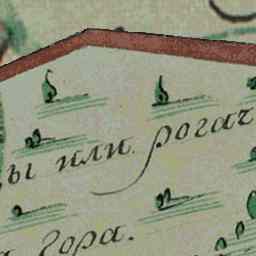 ы или рогач
гора.